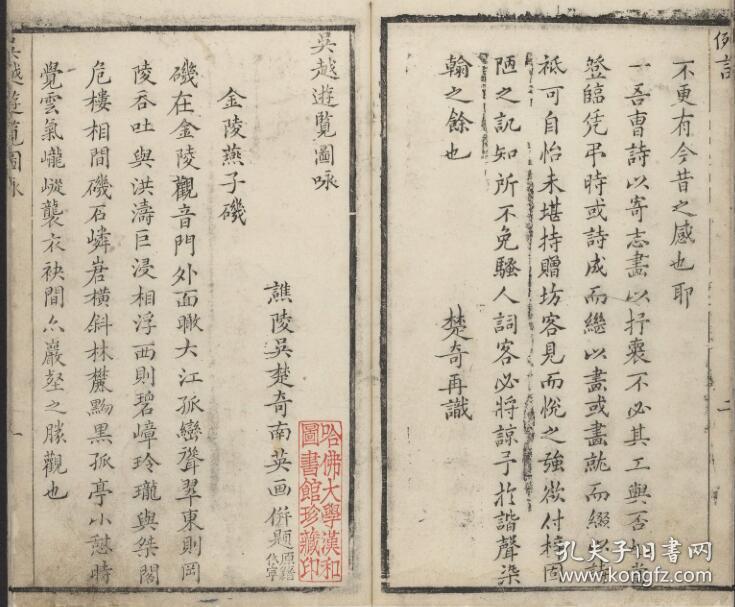 例言
不更有今昔之感也耶
一吾曹詩以寄志畫以抒褱不必其工與否
登臨凭弔時或詩成而繼以畫或畫就而綴以詩
祗可自怡未堪持贈坊客見而悅之強欲付梓固
陋之訊知所不免騷人詞客必將諒予於諧聲染
翰之餘也
楚奇再識
二
吳越遊覧圖咏
譙陵吳楚奇南英画併題
原籍休寧
金陵燕子磯
磯在金陵觀音門外面瞰大江孤巒聳翠東則岡
陵吞吐與洪濤巨浸相浮西則碧嶂玲瓏與桀閣
危樓相間磯石嶙峋橫斜林麓黝黒孤亭小憩時
覺雲氣巃嵷襲衣袂間亦巖壑之勝觀也
哈佛大學漢和
圖書館珍藏印
吳越遊覧圖咏
一
孔夫子旧书网
kongfz.com